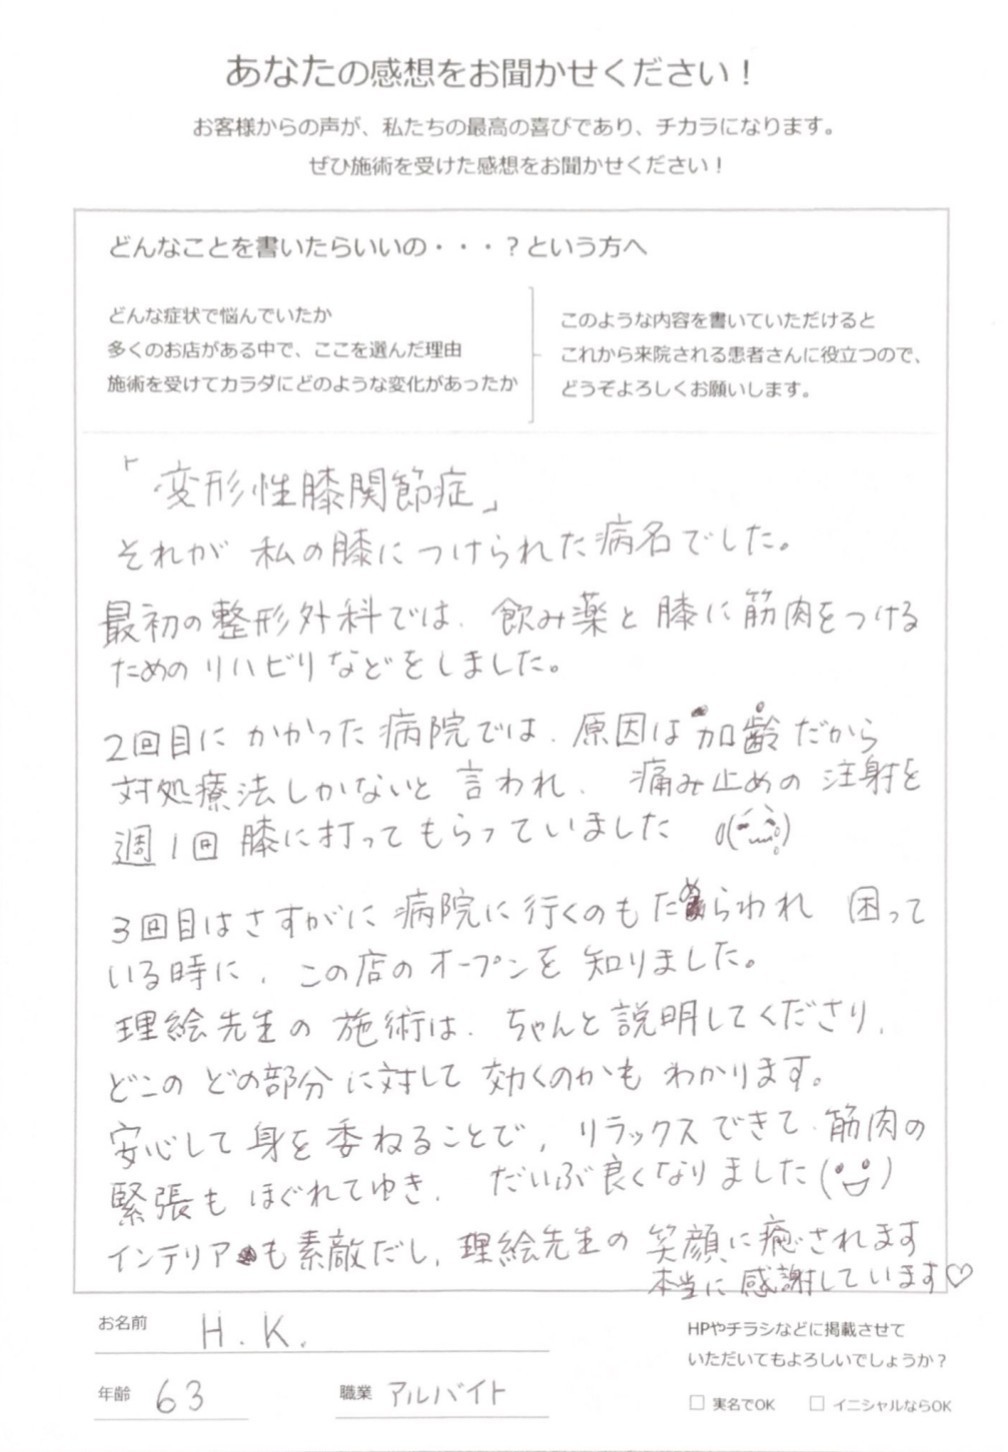 あなたの感想をお聞かせください！
お客様からの声が、私たちの最高の喜びであり、チカラになります。
ぜひ施術を受けた感想をお聞かせください！
どんなことを書いたらいいの・・・？という方へ
どんな症状で悩んでいたか
多くのお店がある中で、ここを選んだ理由
施術を受けてカラダにどのような変化があったか
このような内容を書いていただけると
これから来院される患者さんに役立つので、
どうぞよろしくお願いします。
「変形性膝関節症」
それが 私の膝に つけられた病名でした。
最初の整形外科では、飲み薬と 膝に 筋肉をつける
ための リハビリなどをしました。
2回目に かかった 病院では、原因は 加齢 だから
対処療法しかないと 言われ、 痛み止めの 注射を
週1回 膝に打って もらっていました
3回目はさすがに 病院に行くのも ためらわれ 困って
いる時に、この店の オープンを 知りました。
理絵先生の 施術は、ちゃんと説明してくださり、
どこの どの部分 に対して 効くのかも わかります。
安心して 身を 委ねることで、リラックス できて、筋肉の
緊張も ほぐれてゆき、 だいぶ良くなりました
インテリアも素敵だし、理絵先生の 笑顔に癒されます
本当に 感謝しています♡
お名前 H.K.
年齢 63 職業 アルバイト
HPやチラシなどに掲載させて
いただいてもよろしいでしょうか？
□ 実名でOK □ イニシャルならOK